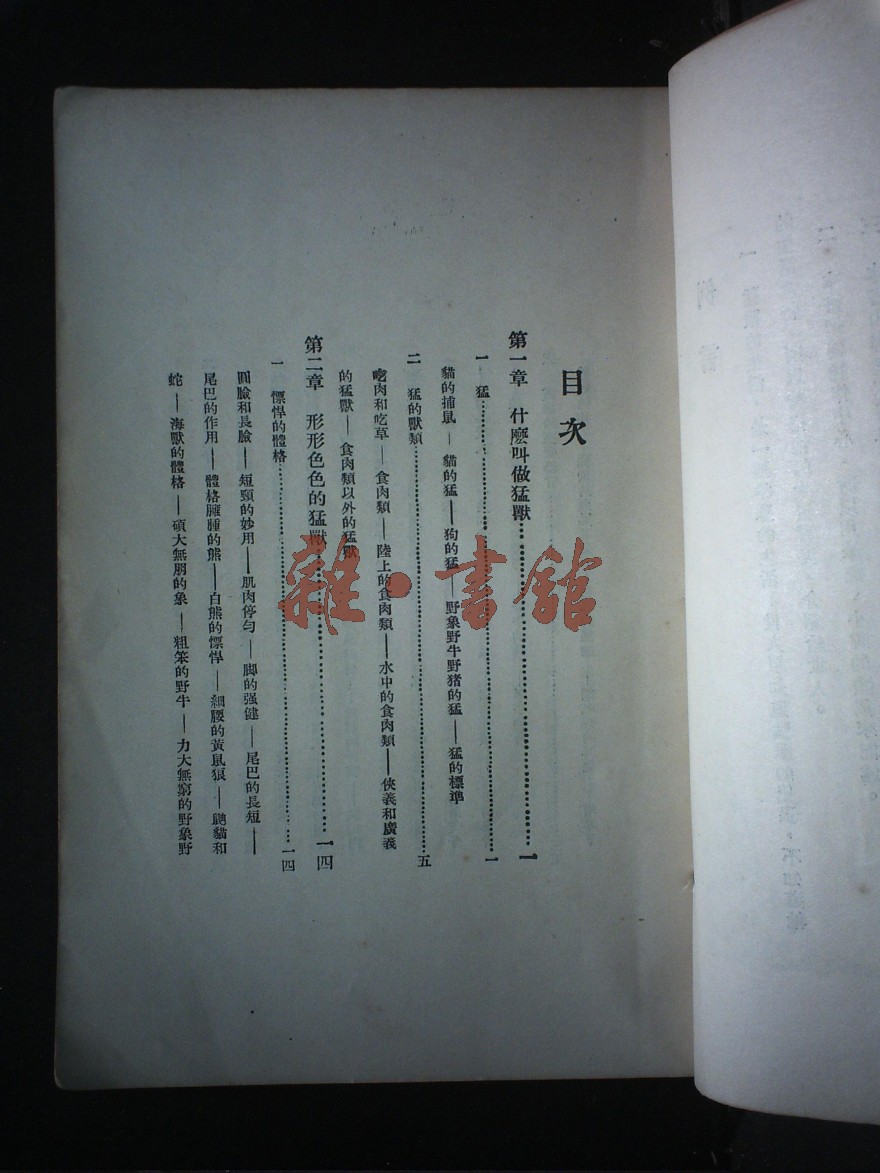 目次
第一章 什麼叫做猛獸……一
一 猛……一
貓的捕鼠——貓的猛——狗的猛——野象野牛野猪的猛——猛的標準
二 猛的獸類……五
吃肉和吃草——食肉類——陸上的食肉類——水中的食肉類——俠義和廣義
的猛獸——食肉類以外的猛獸
第二章 形形色色的猛獸……一四
一 慓悍的體格……一四
圓臉和長臉——短頸的妙用——肌肉停勻——脚的强健——尾巴的長短——
尾巴的作用——體格臃腫的熊——白熊的慓悍——細腰的黃鼠狼——鼬貓和
蛇——海獸的體格——碩大無朋的象——粗笨的野牛——力大無窮的野象野
雜·書館